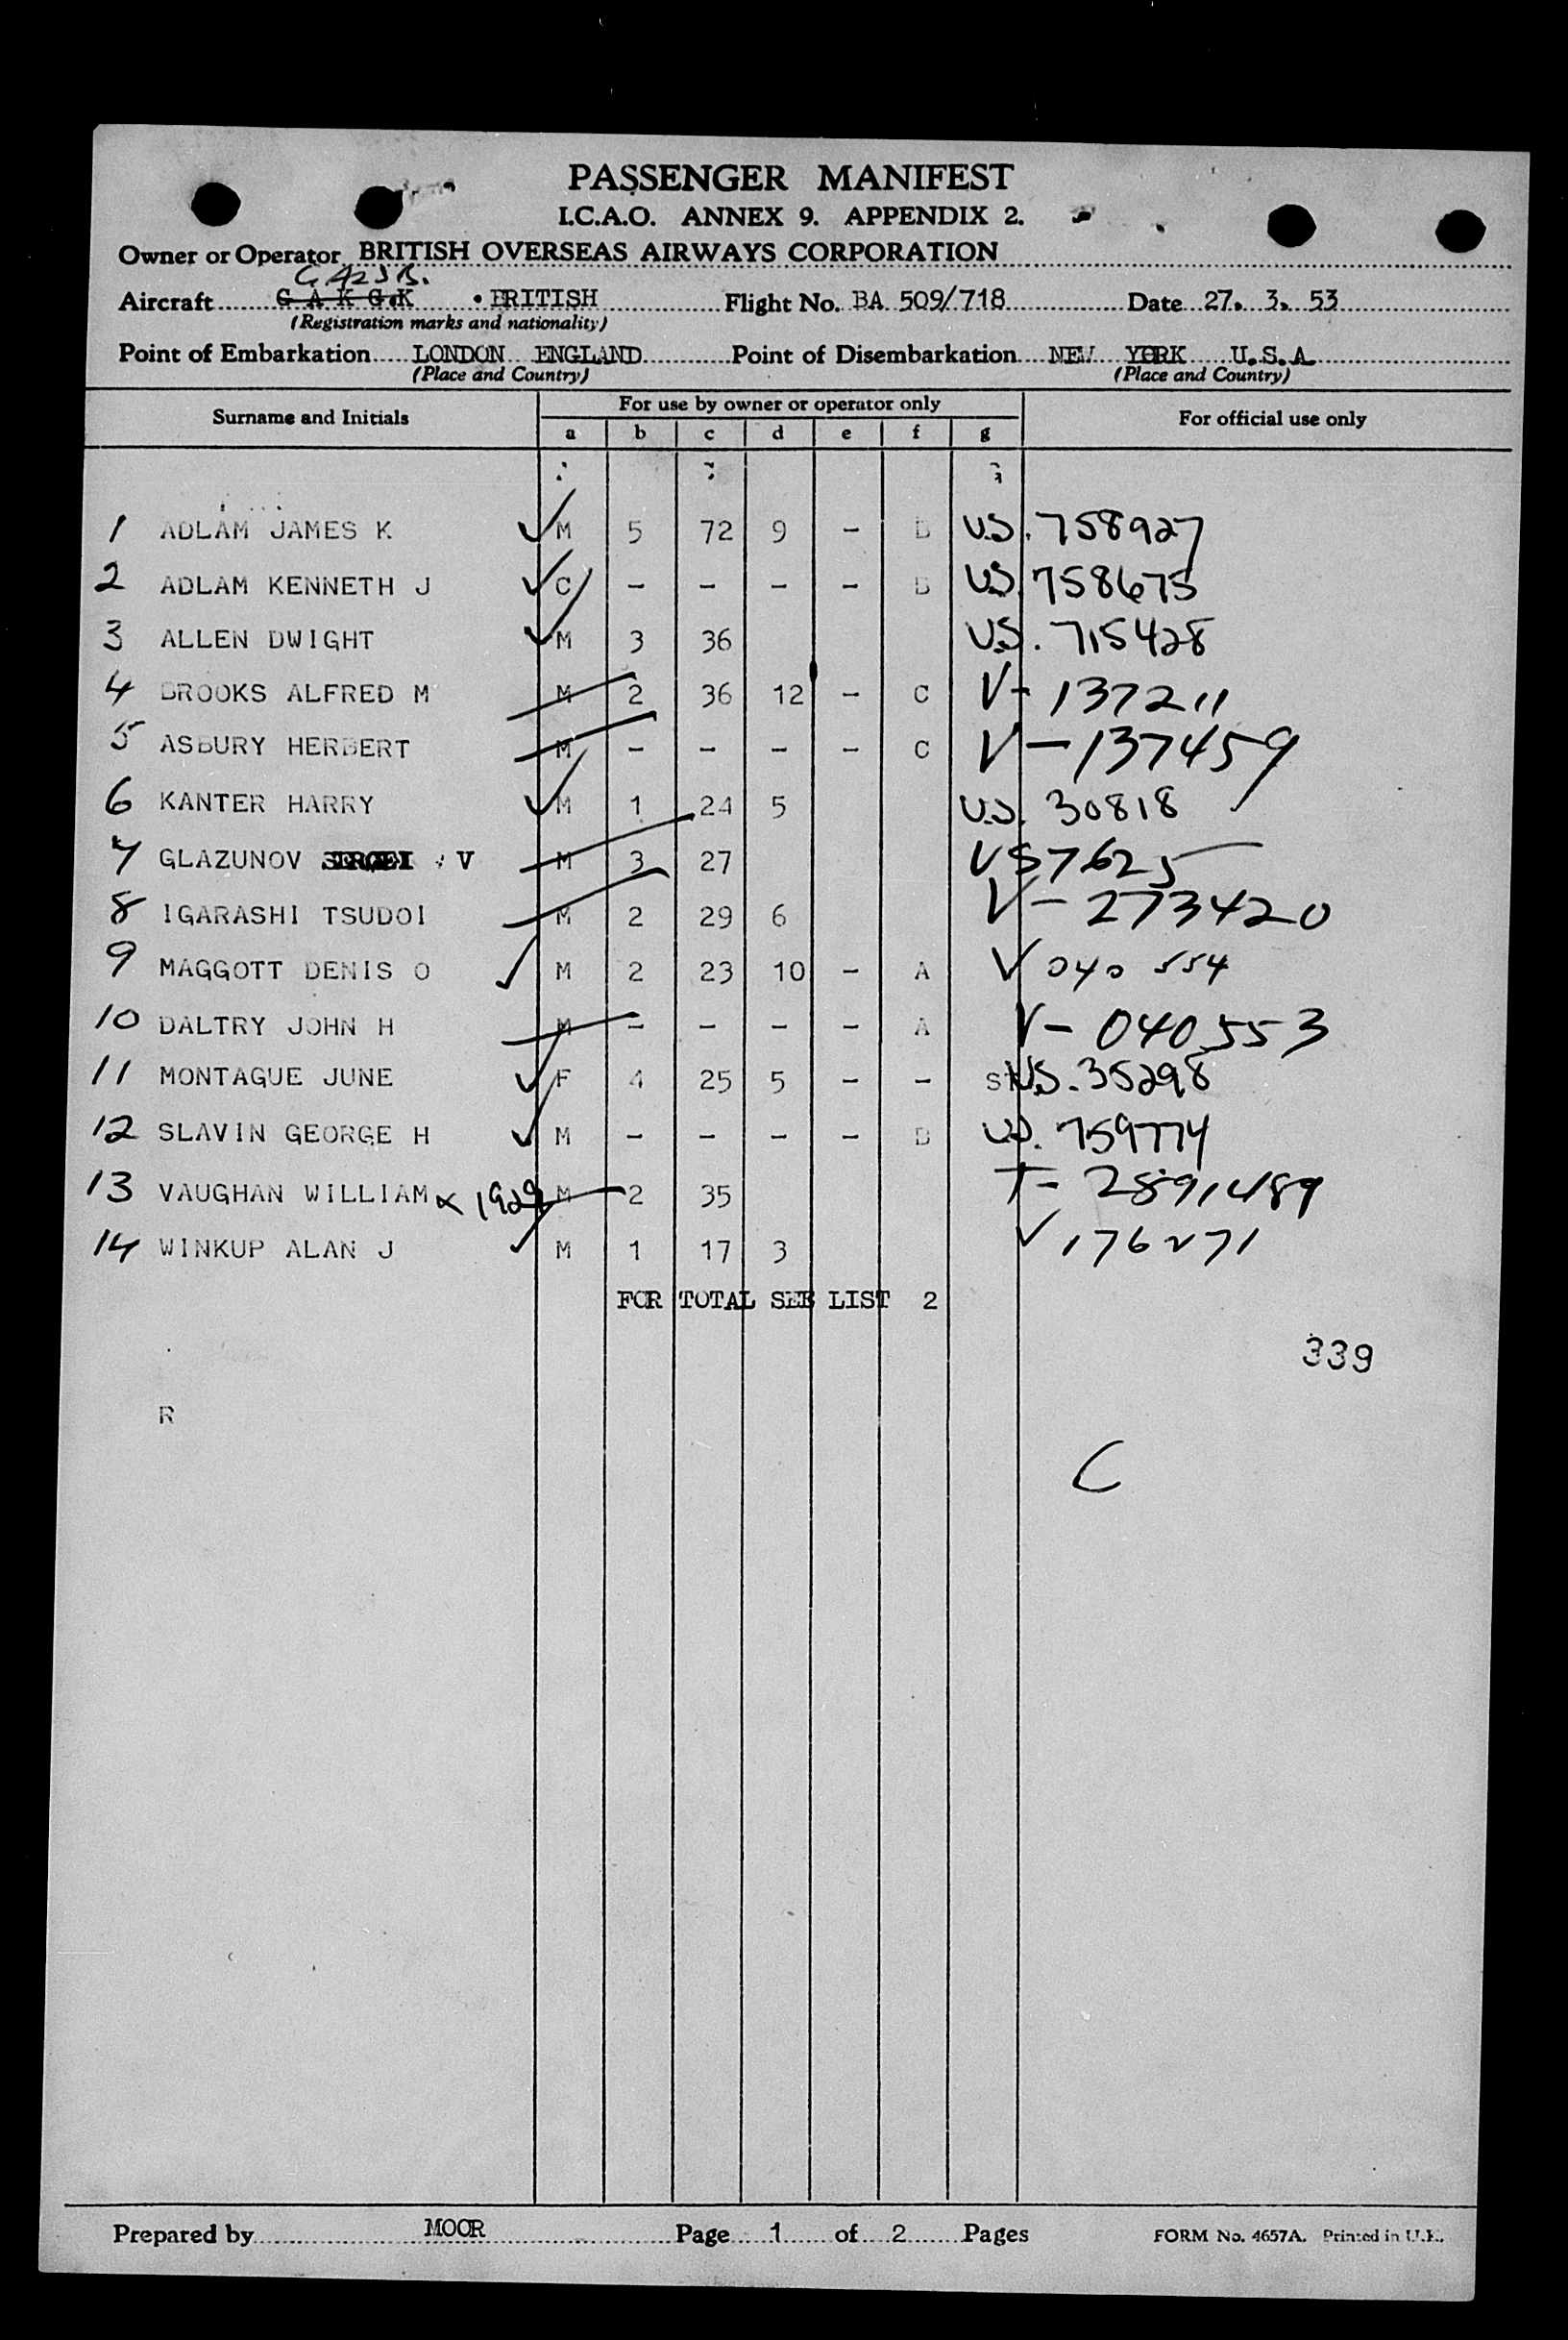 PASSENGER MANIFEST
I.C.A.O. ANNEX 9. APPENDIX 2.
Owner or Operator BRITISH OVERSEAS AIRWAYS CORPORATION
Aircraft G A K G K BRITISH Flight No. BA 509/718 Date 27. 3. 53
(Registration marks and nationality)
Point of Embarkation LONDON ENGLAND Point of Disembarkation NEW YORK U.S.A
(Place and Country) (Place and Country)
Surname and Initials For use by owner or operator only For official use only
a b c d e f g
1 ADLAM JAMES K M 5 72 9 - B U.S. 758927
2 ADLAM KENNETH J C - - - - B U.S. 758675
3 ALLEN DWIGHT M 3 36 U.S. 715428
4 BROOKS ALFRED M M 2 36 12 - C V- 137211
5 ASBURY HERBERT M - - - - C V-137459
6 KANTER HARRY M 1 24 5 U.S. 30818
7 GLAZUNOV V M 3 27 V 57625
8 IGARASHI TSUDOI M 2 29 6 V- 273420
9 MAGGOTT DENIS O M 2 23 10 - A V 040 554
10 DALTRY JOHN H M - - - - A V- 040553
11 MONTAGUE JUNE F 4 25 5 - - U.S. 35298
12 SLAVIN GEORGE H M - - - - B U.S. 759774
13 VAUGHAN WILLIAM x 1929 M 2 35 T- 2891489
14 WINKUP ALAN J M 1 17 3 V 176271
FOR TOTAL SEE LIST 2
339
R
C
Prepared by MOOR Page 1 of 2 Pages FORM No. 4657A. Printed in U.K.